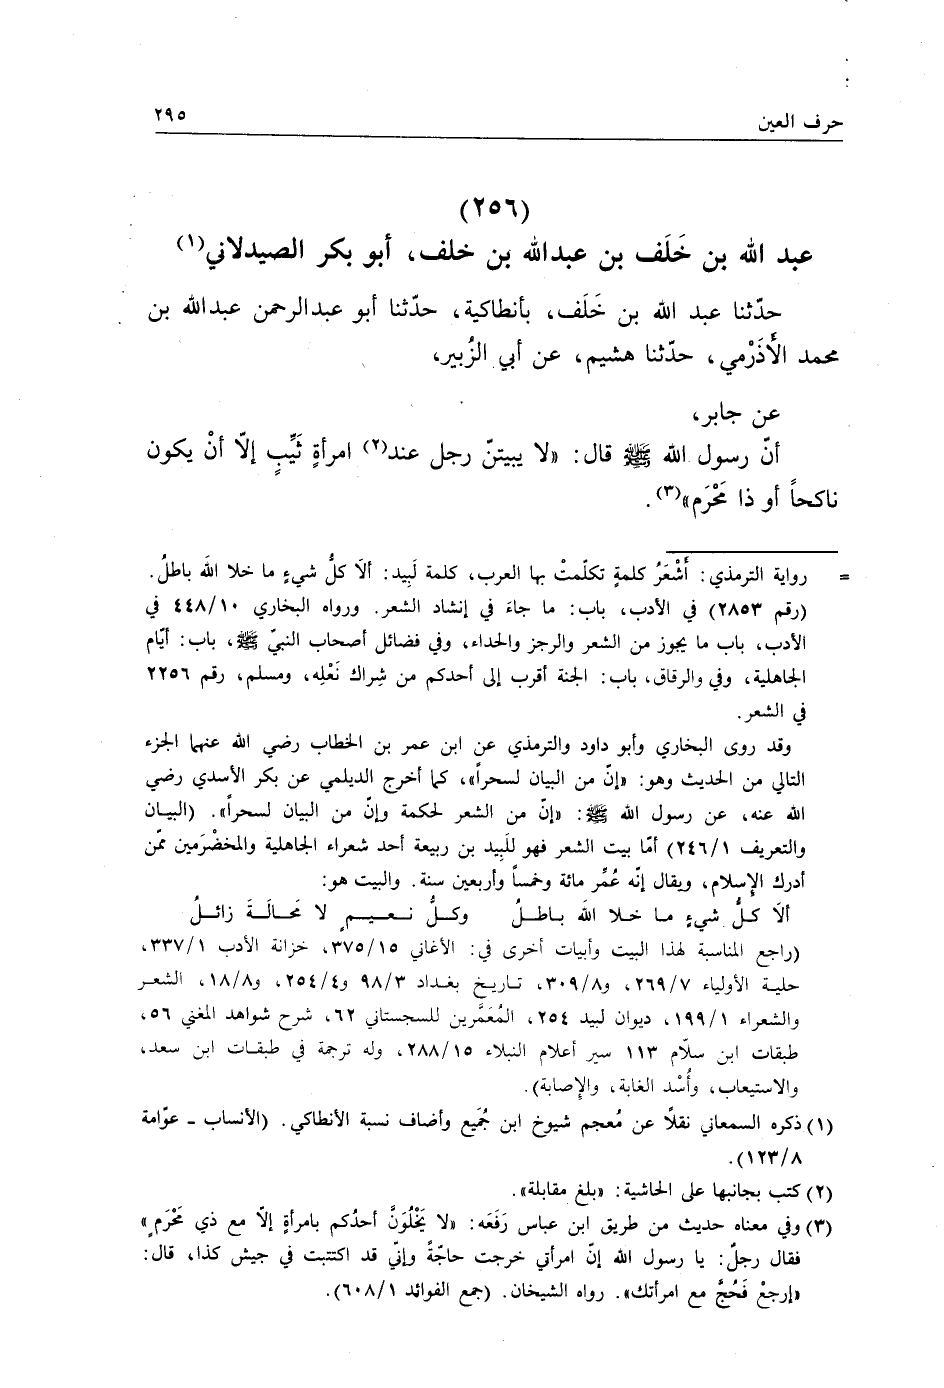 حرف العين ٢٩٥
(٢٥٦)
عبد الله بن خَلَف بن عبدالله بن خلف، أبو بكر الصيدلاني(١)
حدّثنا عبد الله بن خَلَف، بأنطاكية، حدّثنا أبو عبدالرحمن عبدالله بن
محمد الأَذَرْمي، حدّثنا هشيم، عن أبي الزُبير،
عن جابر،
أنّ رسول الله ﷺ قال: «لا يبيتنّ رجل عند(٢) امرأةٍ ثَيِّبٍ إلاّ أنْ يكون
ناكحاً أو ذا مَحْرَم»(٣).
= رواية الترمذي: أَشْعَرُ كلمةٍ تكلّمتْ بها العرب، كلمة لَبِيد: ألاَ كلُّ شيءٍ ما خلا اللهَ باطلُ.
(رقم ٢٨٥٣) في الأدب، باب: ما جاءَ في إنشاد الشعر. ورواه البخاري ٤٤٨/١٠ في
الأدب، باب ما يجوز من الشعر والرجز والحداء، وفي فضائل أصحاب النبيّ ﷺ، باب: أيّام
الجاهلية، وفي والرقاق، باب: الجنة أقرب إلى أحدكم من شِراك نَعْلِه، ومسلم، رقم ٢٢٥٦
في الشعر.
وقد روى البخاري وأبو داود والترمذي عن ابن عمر بن الخطاب رضي الله عنهما الجزء
التالي من الحديث وهو: «إنّ من البيان لسحراً»، كما أخرج الديلمي عن بكر الأسدي رضي
الله عنه، عن رسول الله ﷺ: «إنّ من الشعر لحكمة وإنّ من البيان لسحراً». (البيـان
والتعريف ٢٤٦/١) أمّا بيت الشعر فهو للَبِيد بن ربيعة أحد شعراء الجاهلية والمخضْرَمين ممّن
أدرك الإسلام، ويقال إنّه عُمِّر مائة وخمساً وأربعين سنة. والبيت هو:
ألاَ كـلُّ شيءٍ مـا خـلا اللهَ بـاطـلُ وكـلُّ نـعـيـمٍ لا مَحَالَـةَ زائـلُ
(راجع المناسبة لهذا البيت وأبيات أخرى في: الأغاني ٣٧٥/١٥، خزانة الأدب ٣٣٧/١،
حليـة الأولياء ٢٦٩/٧، و٣٠٩/٨، تـاريـخ بغـداد ٩٨/٣ و٢٥٤/٤، و١٨/٨، الشعـر
والشعراء ١٩٩/١، ديوان لبيد ٢٥٤، المُعَمَّرين للسجستاني ٦٢، شرح شواهد المغني ٥٦،
طبقات ابن سلّام ١١٣ سير أعلام النبلاء ٢٨٨/١٥، وله ترجمة في طبقـات ابن سعد،
والاستيعاب، وأُسْد الغابة، والإصابة).
(١) ذكره السمعاني نقلاً عن مُعجم شيوخ ابن جُمَيع وأضاف نسبة الأنطاكي. (الأنساب ـ عوّامة
١٢٣/٨).
(٢) كتب بجانبها على الحاشية: «بلغ مقابلة».
(٣) وفي معناه حديث من طريق ابن عباس رَفَعَه: «لا يَخْلُوَنَّ أحدُكم بامرأةٍ إلاّ مع ذي مَحْرَمٍ»
فقال رجلٌ: يا رسول الله إنّ امرأتي خرجت حاجّةً وإنّي قد اكتتبت في جيش كذا، قال:
«إرجعْ فَحُجَّ مع امرأتك». رواه الشيخان. (جمع الفوائد ٦٠٨/١).